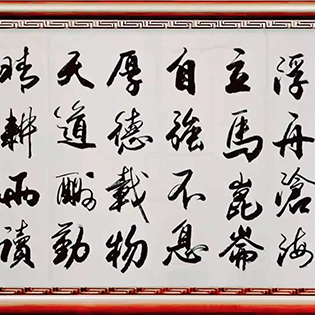 浮舟滄海
立馬崑崙
自強不息
厚德載物
天道酬勤
晴耕雨讀